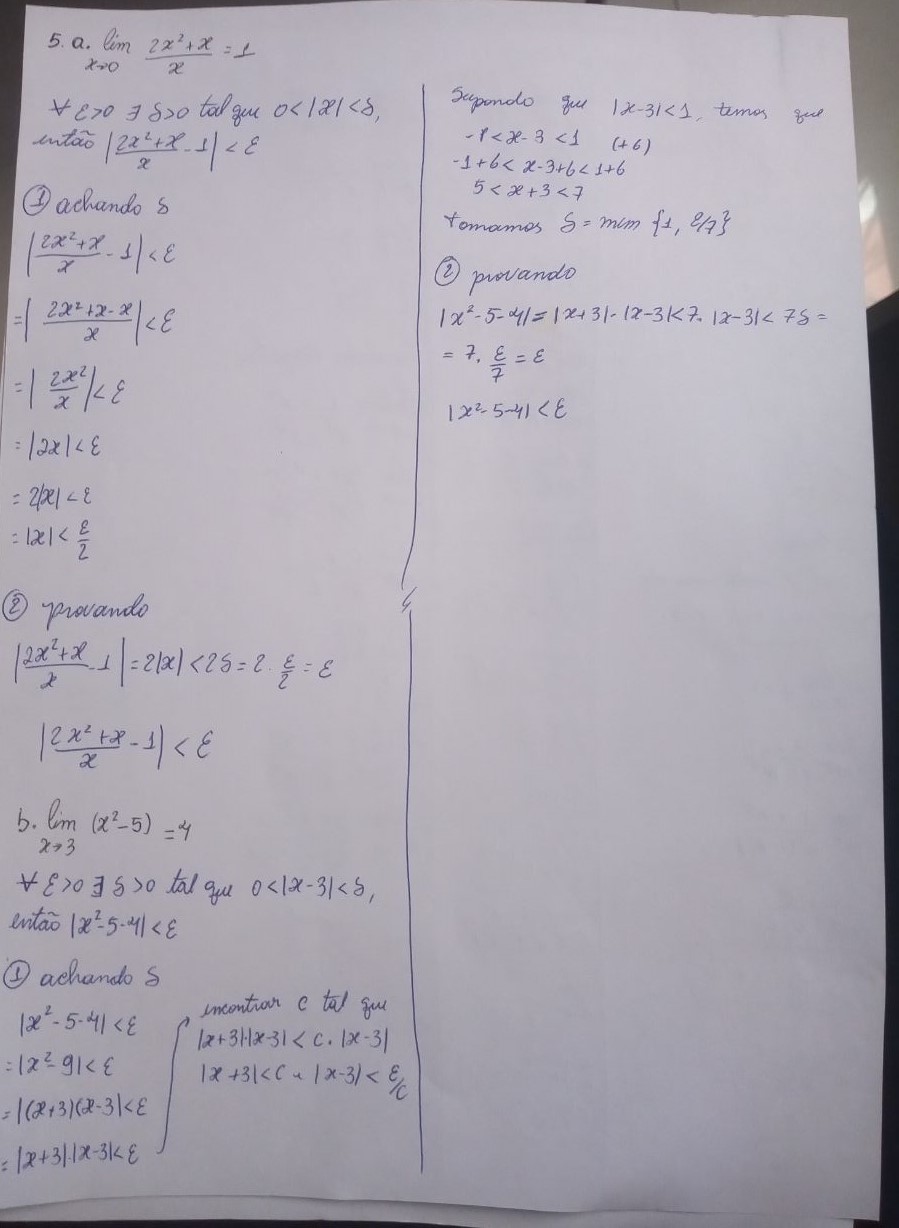 5. a. lim 2x²+x/x = 1
x→0
∀ ε>0 ∃ δ>0 tal que 0<|x|<δ,
então |2x²+x/x - 1| < ε
① achando δ
|2x²+x/x - 1| < ε
=| 2x²+x-x/x | < ε
=| 2x²/x | < ε
= |2x| < ε
= 2|x| < ε
= |x| < ε/2
② provando
|2x²+x/x - 1| = 2|x| < 2δ = 2 . ε/2 = ε
|2x²+x/x - 1| < ε
b. lim (x²-5) = 4
x→3
∀ ε>0 ∃ δ>0 tal que 0<|x-3|<δ,
então |x²-5-4|<ε
① achando δ
|x²-5-4|<ε
=|x²-9|<ε
=|(x+3)(x-3|<ε
=|x+3|.|x-3|<ε
encontrar c tal que
|x+3|.|x-3| < c . |x-3|
|x+3|<c |x-3| < ε/c
Supondo que |x-3|<1, temos que
-1<x-3<1 (+6)
-1+6<x-3+6<1+6
5<x+3<7
tomamos δ = min {1, ε/7}
② provando
|x²-5-4|=|x+3|.|x-3|<7. |x-3|< 7δ =
= 7. ε/7 = ε
|x²-5-4| < ε